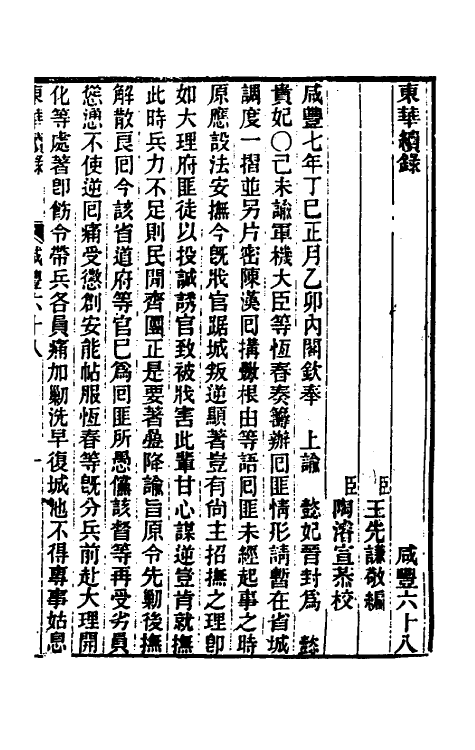 東華續錄 咸豐六十八
臣王先謙敬編
臣陶濬宣恭校
咸豐七年丁巳正月乙卯內閣欽奉 上諭 懿妃晉封為 懿
貴妃〇己未諭軍機大臣等恆春奏籌辦回匪情形請暫在省城
調度一摺並另片密陳漢回搆釁根由等語回匪未經起事之時
原應設法安撫今旣戕官踞城叛逆顯著豈有尚主招撫之理卽
如大理府匪徒以投誠誘官致被戕害此輩甘心謀逆豈肯就撫
此時兵力不足則民間齊團正是要著疊降諭旨原令先勦後撫
解散良回今該省道府等官已為回匪所愚儻該督等再受劣員
慫慂不使逆回痛受懲創安能帖服恆春等旣分兵前赴大理開
化等處著卽飭令帶兵各員痛加勦洗早復城池不得專事姑息
東華續錄 咸豐六十八 一